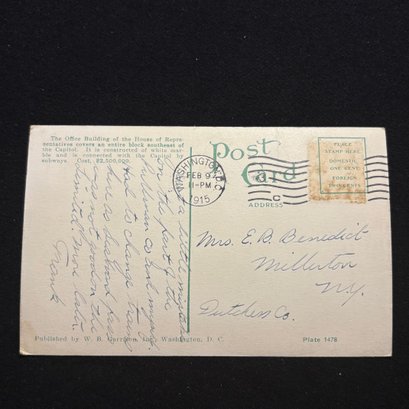 The Office Building of the House of Repre-
sentatives covers an entire block southeast of
the Capitol. It is constructed of white mar-
ble and is connected with the Capitol by
subways. Cost, $2,500,000.
Post Card
ADDRESS
PLACE
STAMP HERE
DOMESTIC
ONE CENT
FOREIGN
TWO CENTS
WASHINGTON, D.C.
FEB 9
11-PM
1915
C
Mrs. E. B. Benedict
Millerton
N.Y.
Dutchess Co.
a little
on the part of the
Pullman
had to change
was not on the
limited more later.
Frank
Published by W. B. Garrison, Inc., Washington, D. C.
Plate 1478